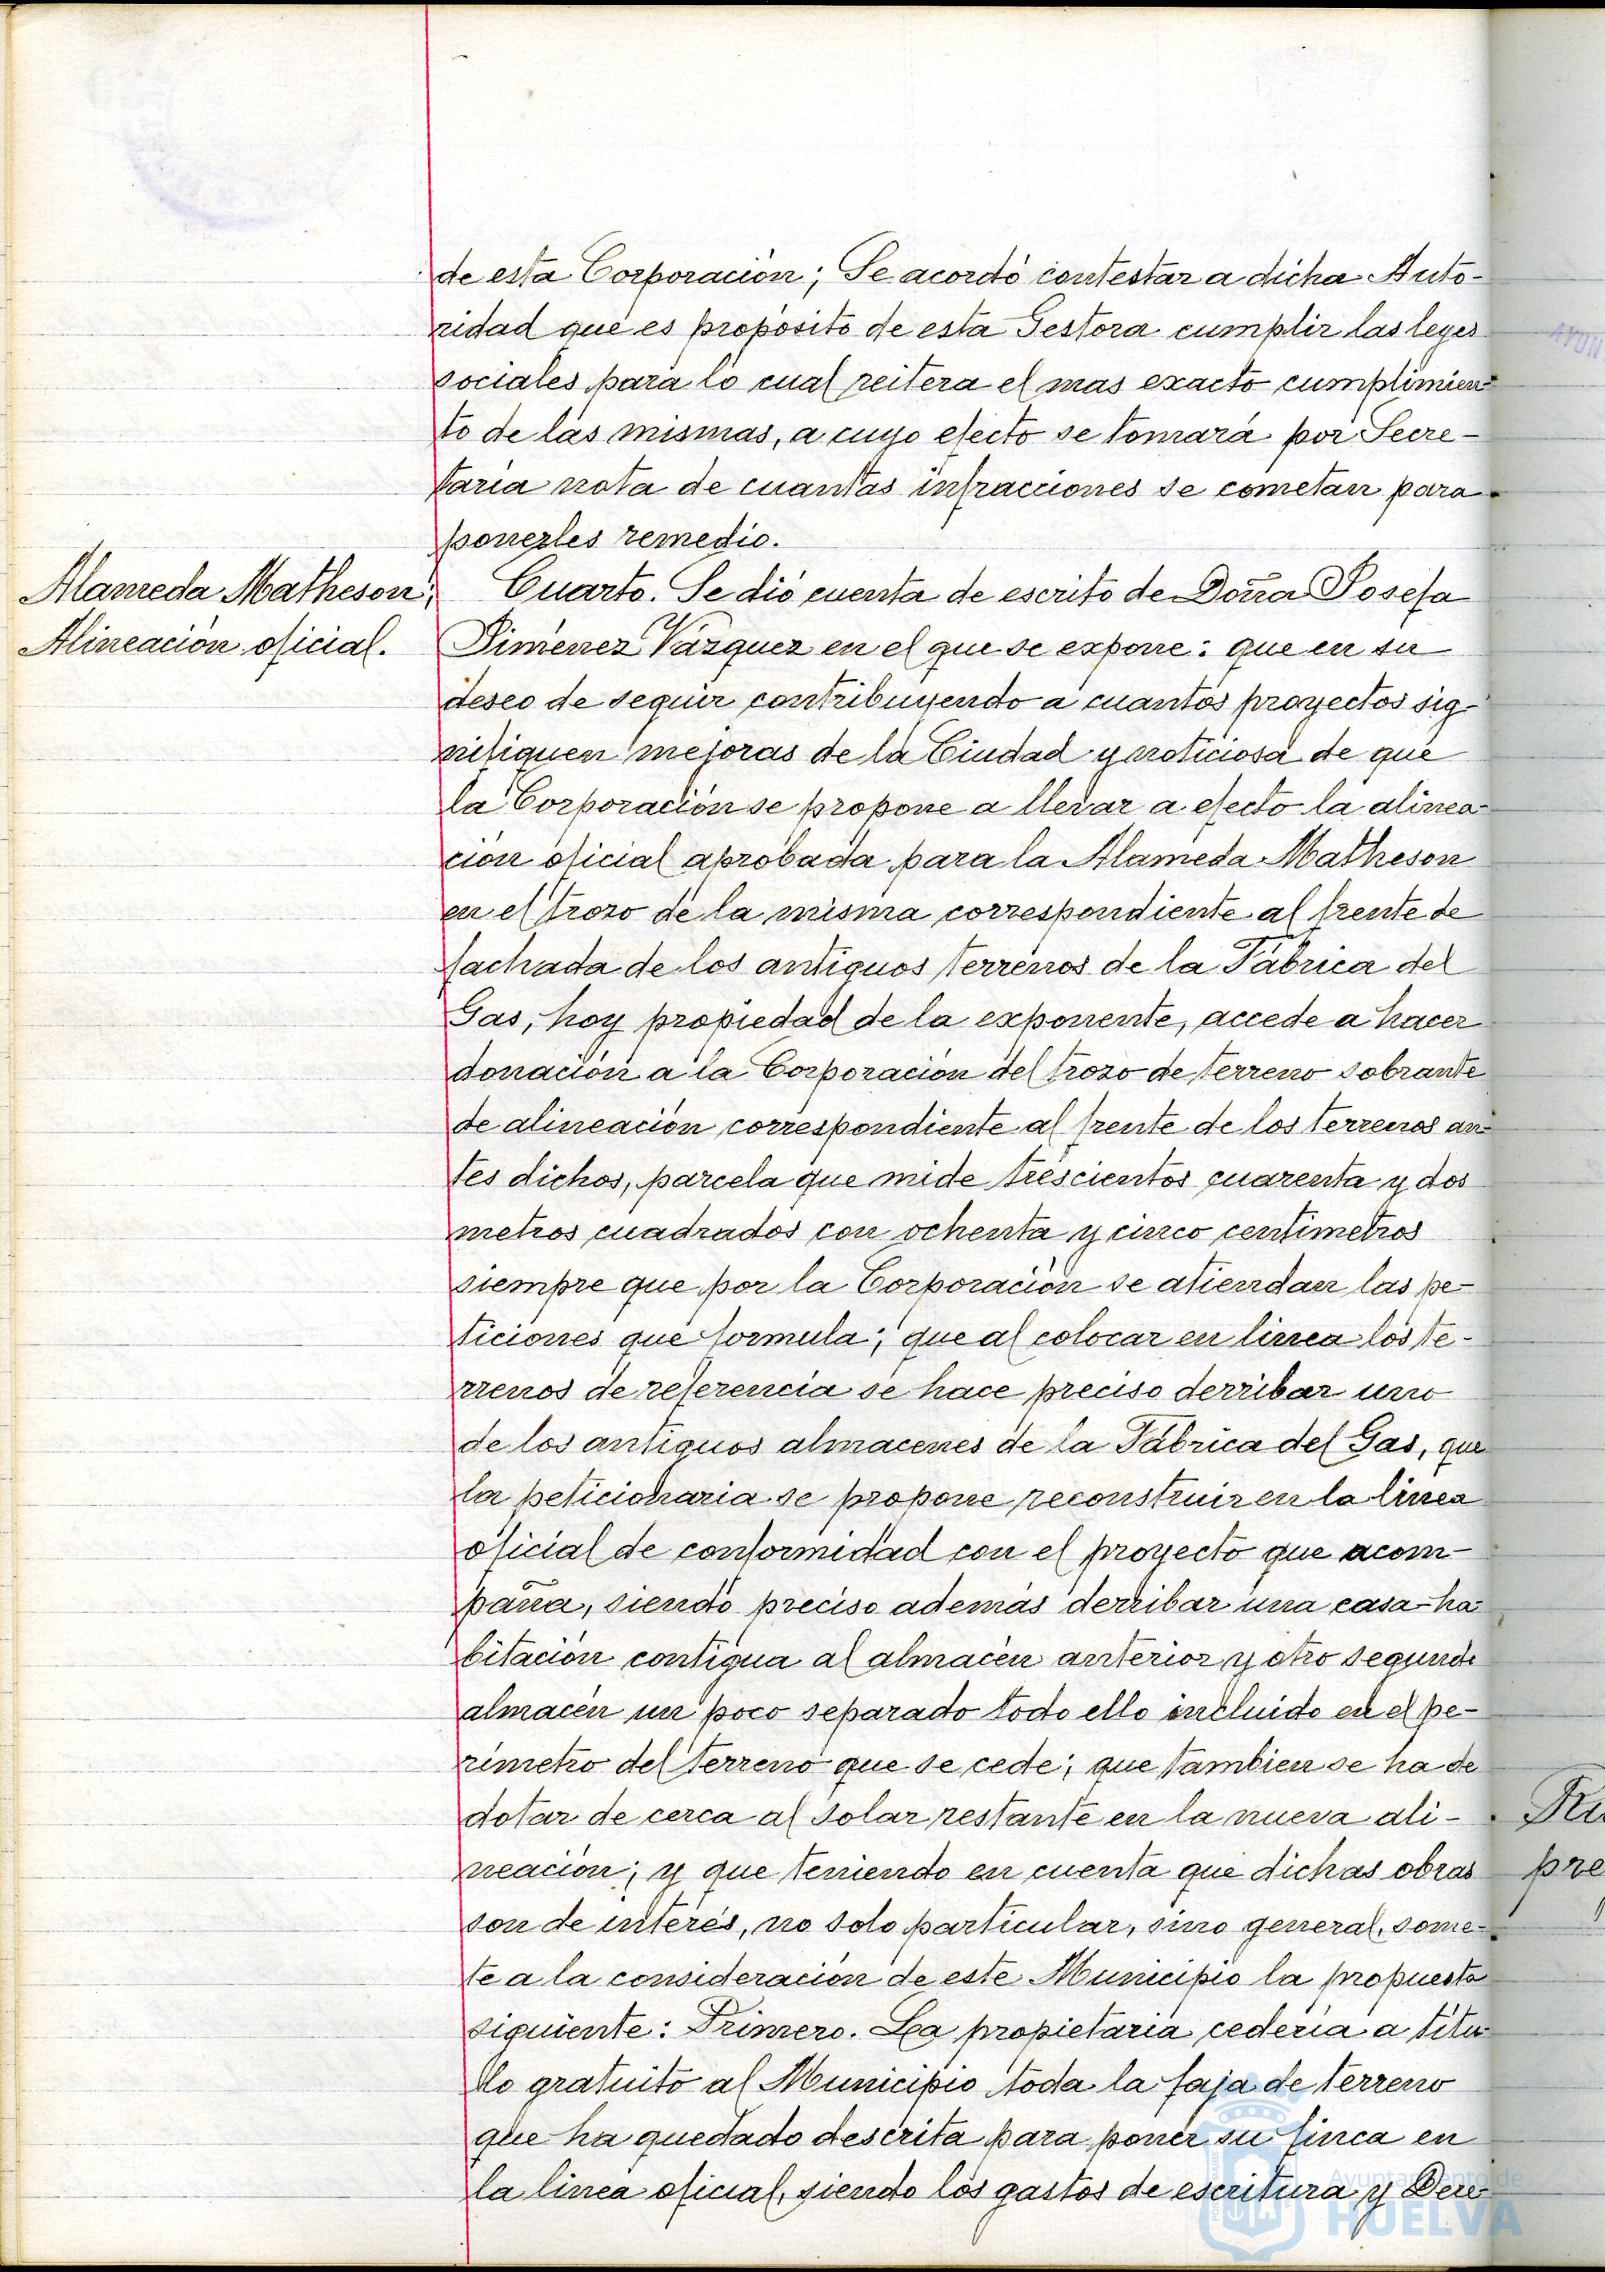 de esta Corporación; Se acordó contestar a dicha Auto-
ridad que es propósito de esta Gestora cumplir las leyes
sociales para lo cual reitera el mas exacto cumplimien-
to de las mismas, a cuyo efecto se tomará por Secre-
taria nota de cuantas infracciones se cometan para
ponerles remedio.
Alameda Matheson;
Alineación oficial.
Cuarto. Se dió cuenta de escrito de Doña Josefa
Jiménez Vázquez en el que se expone: que en su
deseo de seguir contribuyendo a cuantos proyectos sig-
nifiquen mejoras de la Ciudad y noticiosa de que
la Corporación se propone a llevar a efecto la alinea-
ción oficial aprobada para la Alameda Matheson
en el trozo de la misma correspondiente al frente de
fachada de los antiguos terrenos de la Fábrica del
Gas, hoy propiedad de la exponente, accede a hacer
donación a la Corporación del trozo de terreno sobrante
de alineación correspondiente al frente de los terrenos an-
tes dichos, parcela que mide trescientos cuarenta y dos
metros cuadrados con ochenta y cinco centimetros
siempre que por la Corporación se atiendan las pe-
ticiones que formula; que al colocar en linea los te-
rrenos de referencia se hace preciso derribar uno
de los antiguos almacenes de la Fábrica del Gas, que
la peticionaria se propone reconstruir en la linea
oficial de conformidad con el proyecto que acom-
paña, siendo preciso además derribar una casa-ha-
bitación contigua al almacén anterior y otro segundo
almacén un poco separado todo ello incluido en el pe-
rimetro del terreno que se cede; que tambien se ha de
dotar de cerca al solar restante en la nueva ali-
neación; y que teniendo en cuenta que dichas obras
son de interés, no solo particular, sino general, some-
te a la consideración de este Municipio la propuesta
siguiente: Primero. La propietaria cedería a titu-
lo gratuito al Municipio toda la faja de terreno
que ha quedado descrita para poner su finca en
la linea oficial, siendo los gastos de escritura y Dere-
pre
Ayuntamiento de
HUELVA